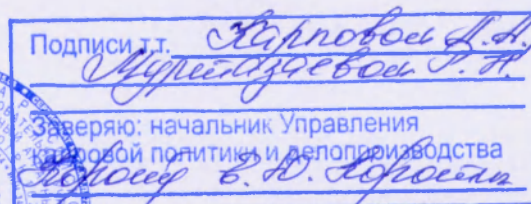 Подписи т.т. Карповой Л.Н.
Муртазаевой Г.Н.
Заверяю: начальник Управления
кадровой политики и делопроизводства
В.Ю.